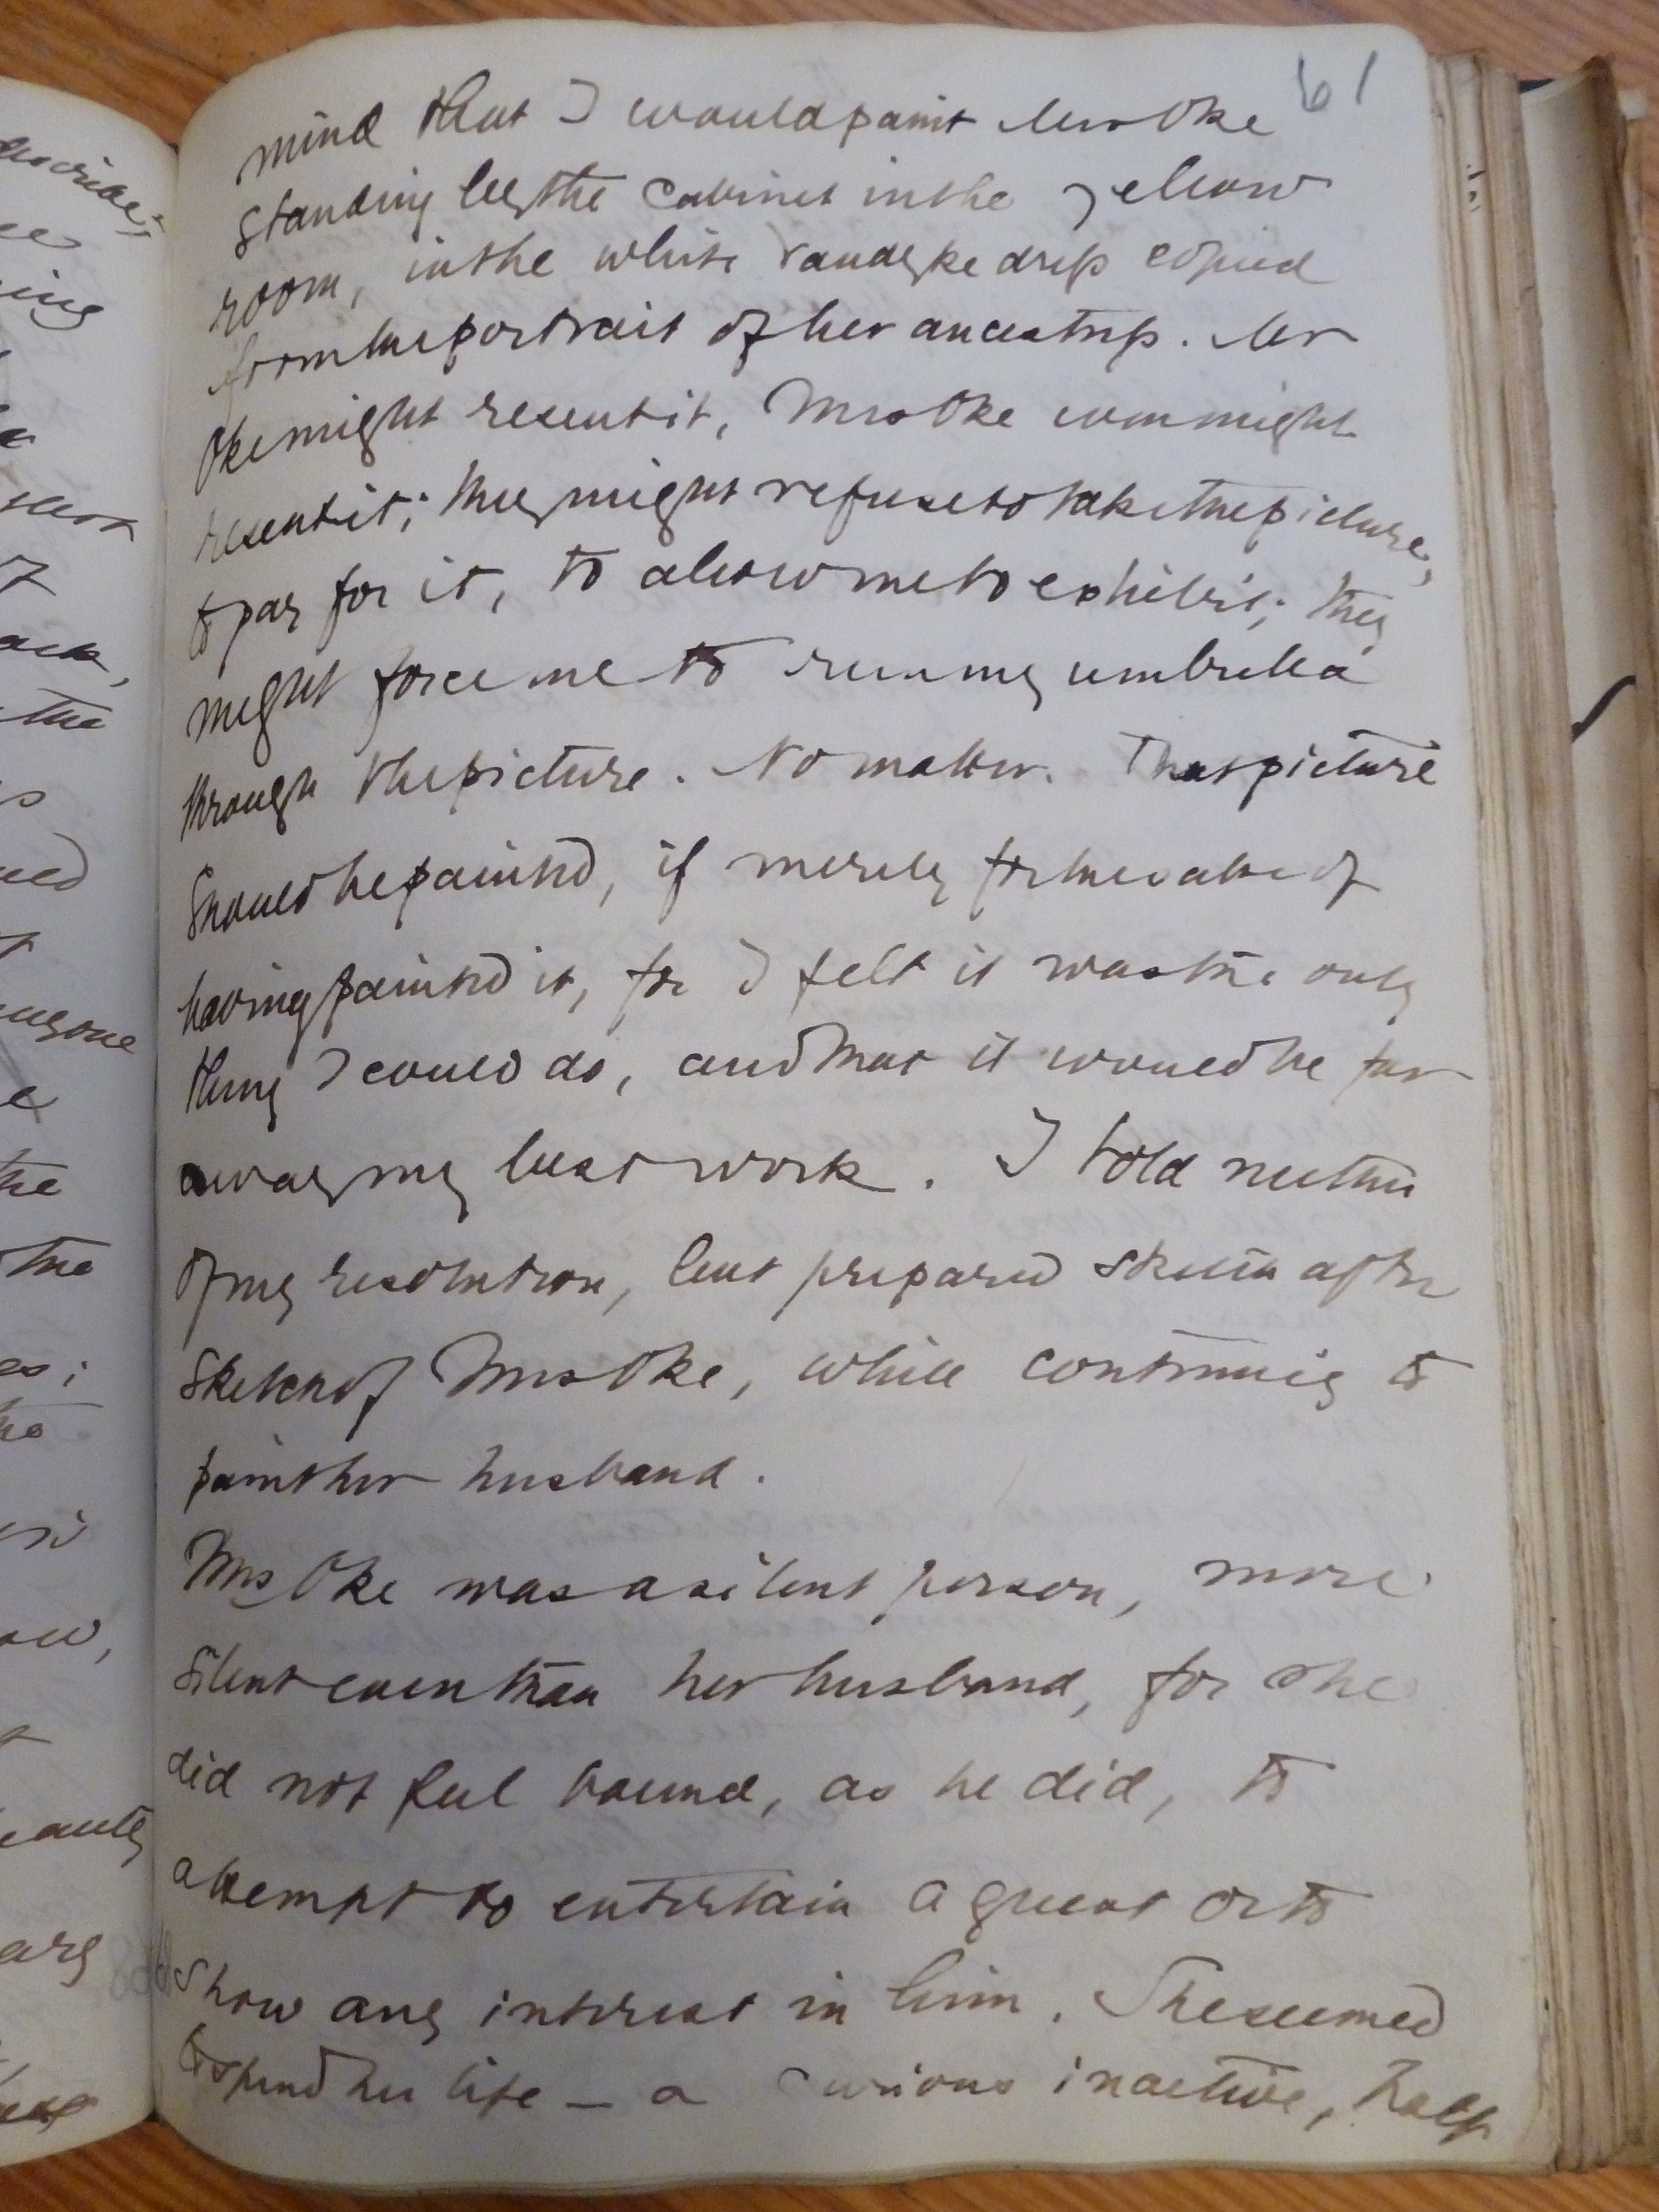 61
mind that I would paint Mrs Oke
standing by the cabinet in the yellow
room, in the white Vandyke dress copied
from the portrait of her ancestress. Mr
Oke might resent it, Mrs Oke even might
resent it; they might refuse to take the picture,
to pay for it, to allow me to exhibit; they
might force me to run my umbrella
through the picture. No matter. That picture
should be painted, if merely for the sake of
having painted it, for I felt it was the only
thing I could do, and that it would be far
away my best work. I told neither
of my resolution, but prepared sketch after
sketch of Mrs Oke, while continuing to
paint her husband.
Mrs Oke was a silent person, more
silent even than her husband, for she
did not feel bound, as he did, to
attempt to entertain a guest or to
show any interest in him. She seemed
to spend her life – a curious inactive, half